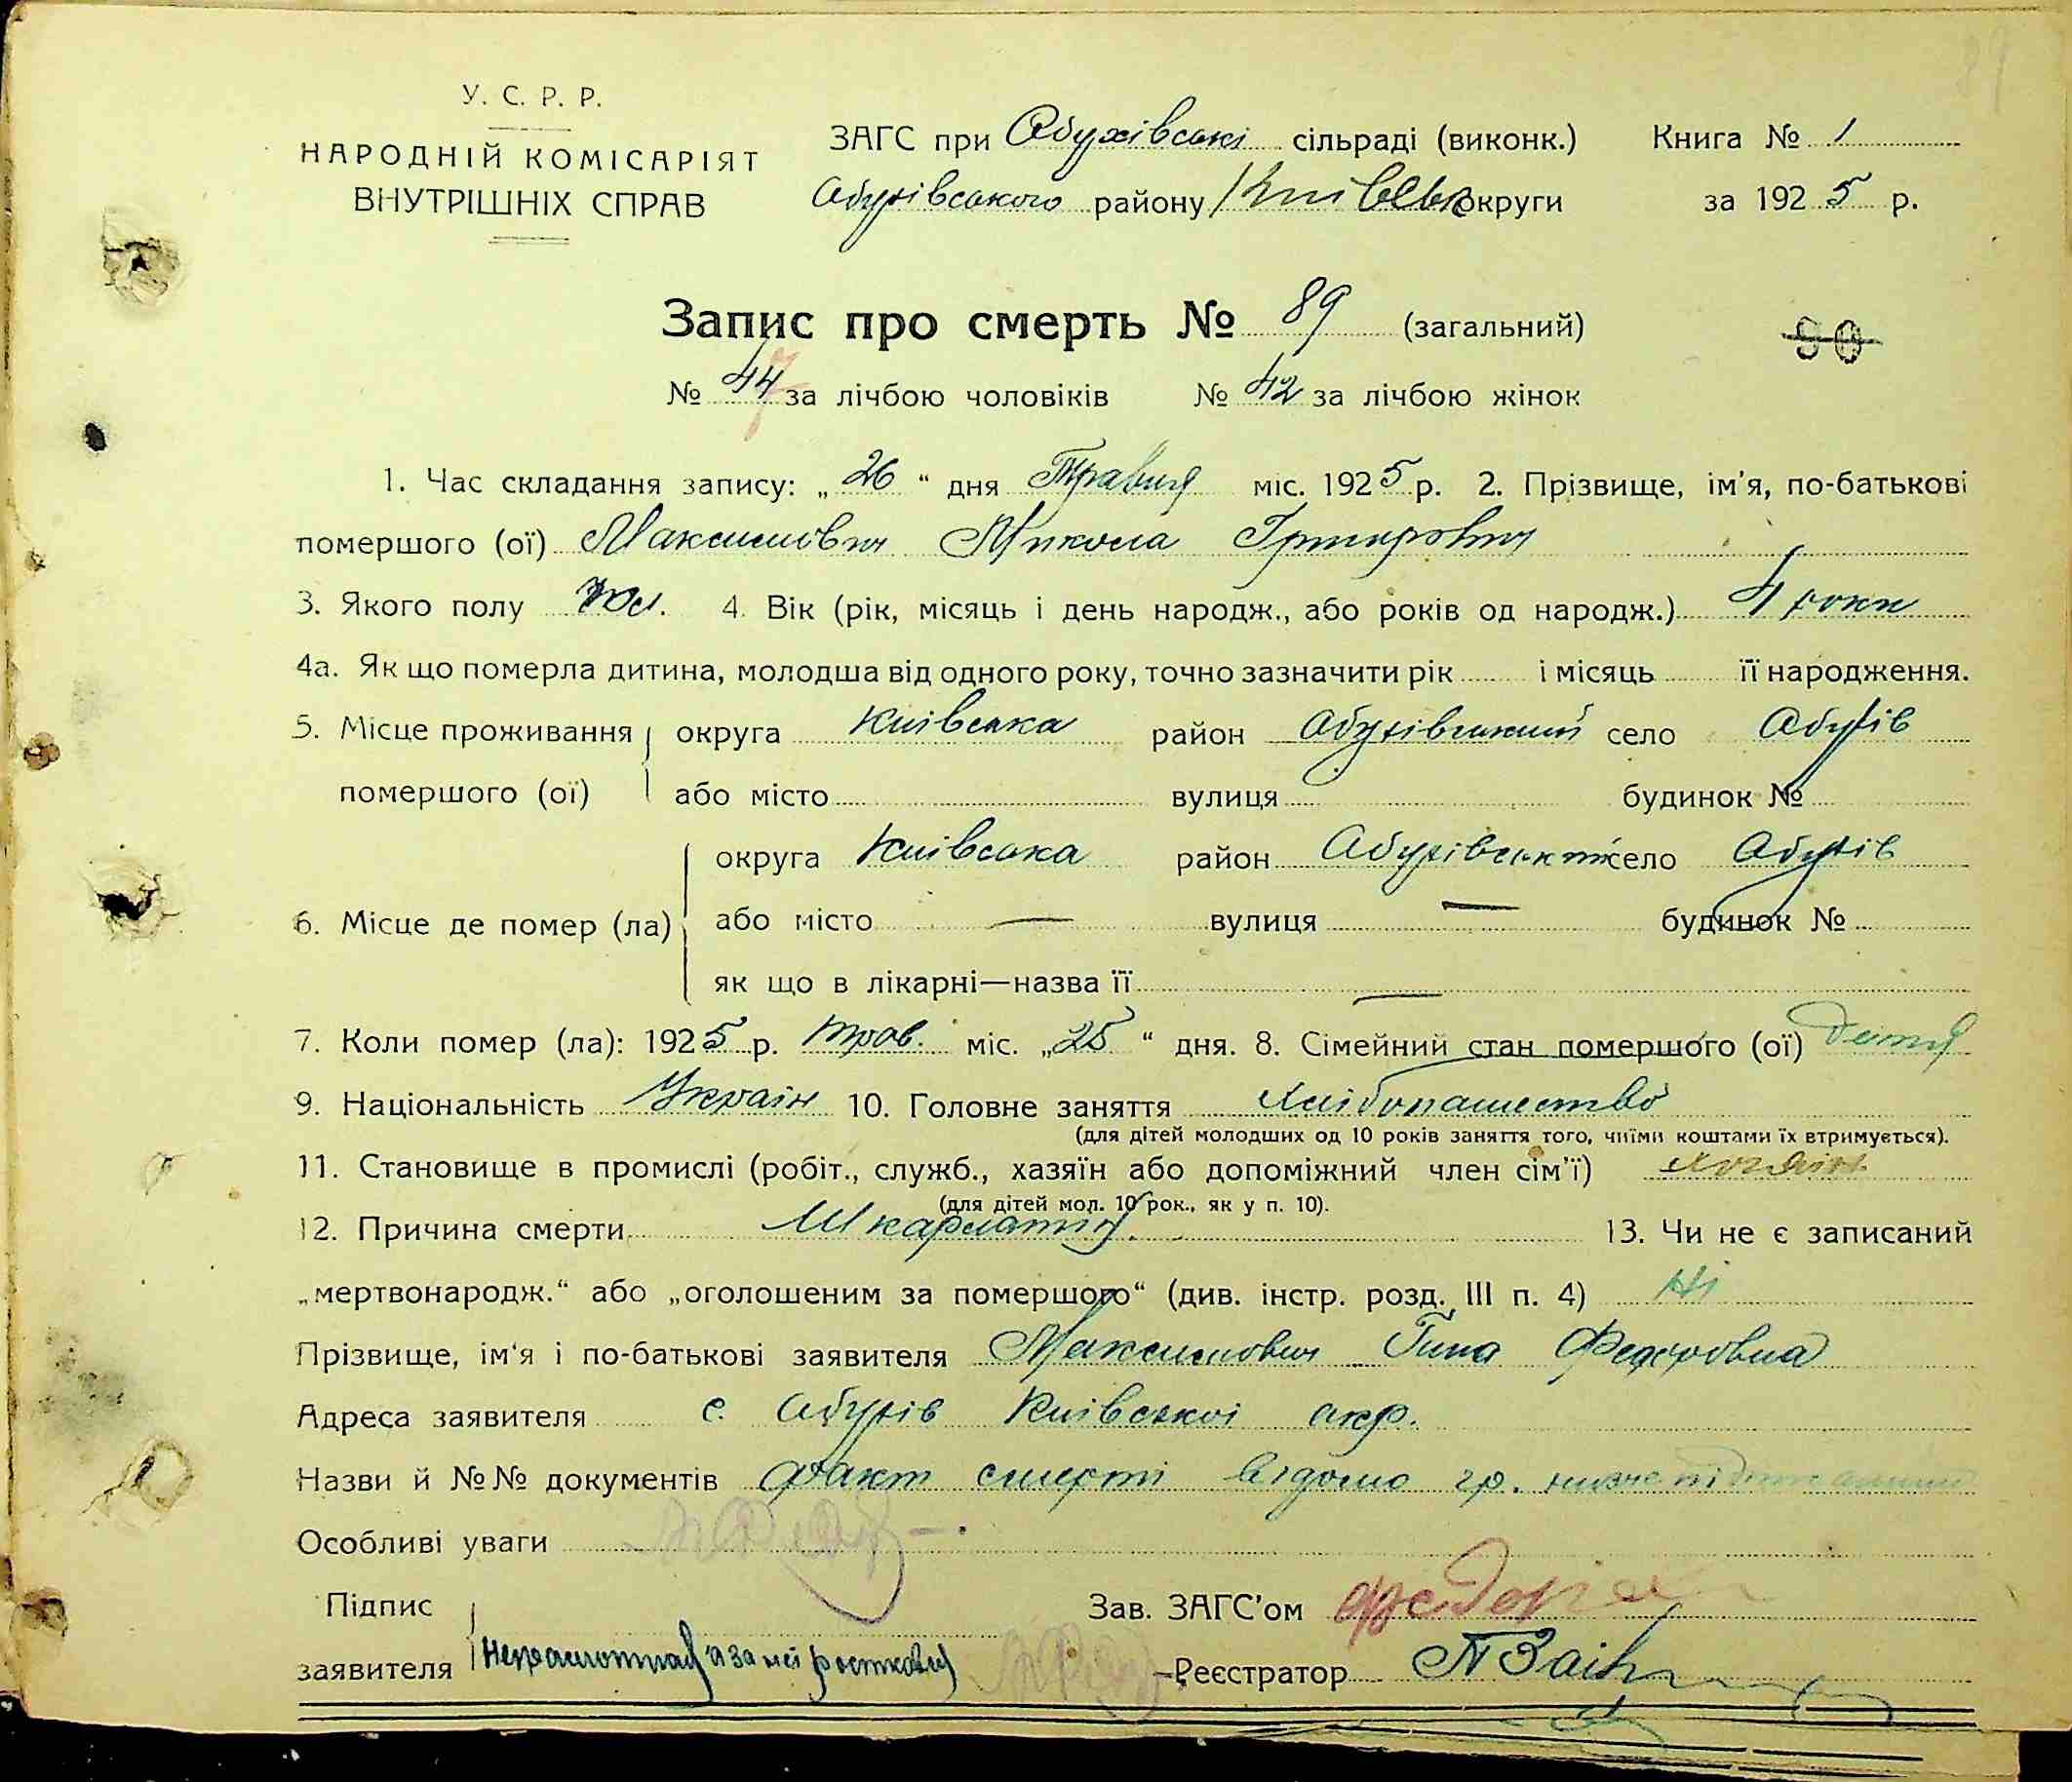 У. С. Р. Р.
НАРОДНІЙ КОМІСАРІЯТ
ВНУТРІШНІХ СПРАВ
ЗАГС при Абухівські сільраді (виконк.) Книга № 1
Абухівського району Київськ округи за 1925 р.
Запис про смерть № 89 (загальний)
90
№ 47 за лічбою чоловіків № 42 за лічбою жінок
1. Час складання запису: „26“ дня Травня міс. 1925 р. 2. Прізвище, ім'я, по-батькові
помершого (ої) Максимович Микола Григорович
3. Якого полу 4. Вік (рік, місяць і день народж., або років од народж.) 4 роки
4а. Як що померла дитина, молодша від одного року, точно зазначити рік і місяць її народження.
5. Місце проживання округа Київська район Абухівський село Абухів
помершого (ої) або місто вулиця будинок №
округа Київська район Абухівський село Абухів
6. Місце де помер (ла) або місто — вулиця — будинок №
як що в лікарні—назва її —
7. Коли помер (ла): 1925 р. трав. міс. „25“ дня. 8. Сімейний стан помершого (ої) дитя
9. Національність Україн 10. Головне заняття Хлібопашество
(для дітей молодших од 10 років заняття того, чиїми коштами їх втримується).
11. Становище в промислі (робіт., служб., хазяїн або допоміжний член сім'ї) Хозяїн
(для дітей мол. 10 рок., як у п. 10).
12. Причина смерти Шкарлатин. 13. Чи не є записаний
„мертвонародж.“ або „оголошеним за помершого“ (див. інстр. розд. III п. 4) Ні
Прізвище, ім'я і по-батькові заявителя Максимович Федоровна
Адреса заявителя с. Абухів Київської окр.
Назви й №№ документів Факт смерті відомо гр. нижче підписаним
Особливі уваги
Підпис Зав. ЗАГС'ом
заявителя Неграмотная а за неї Реєстратор